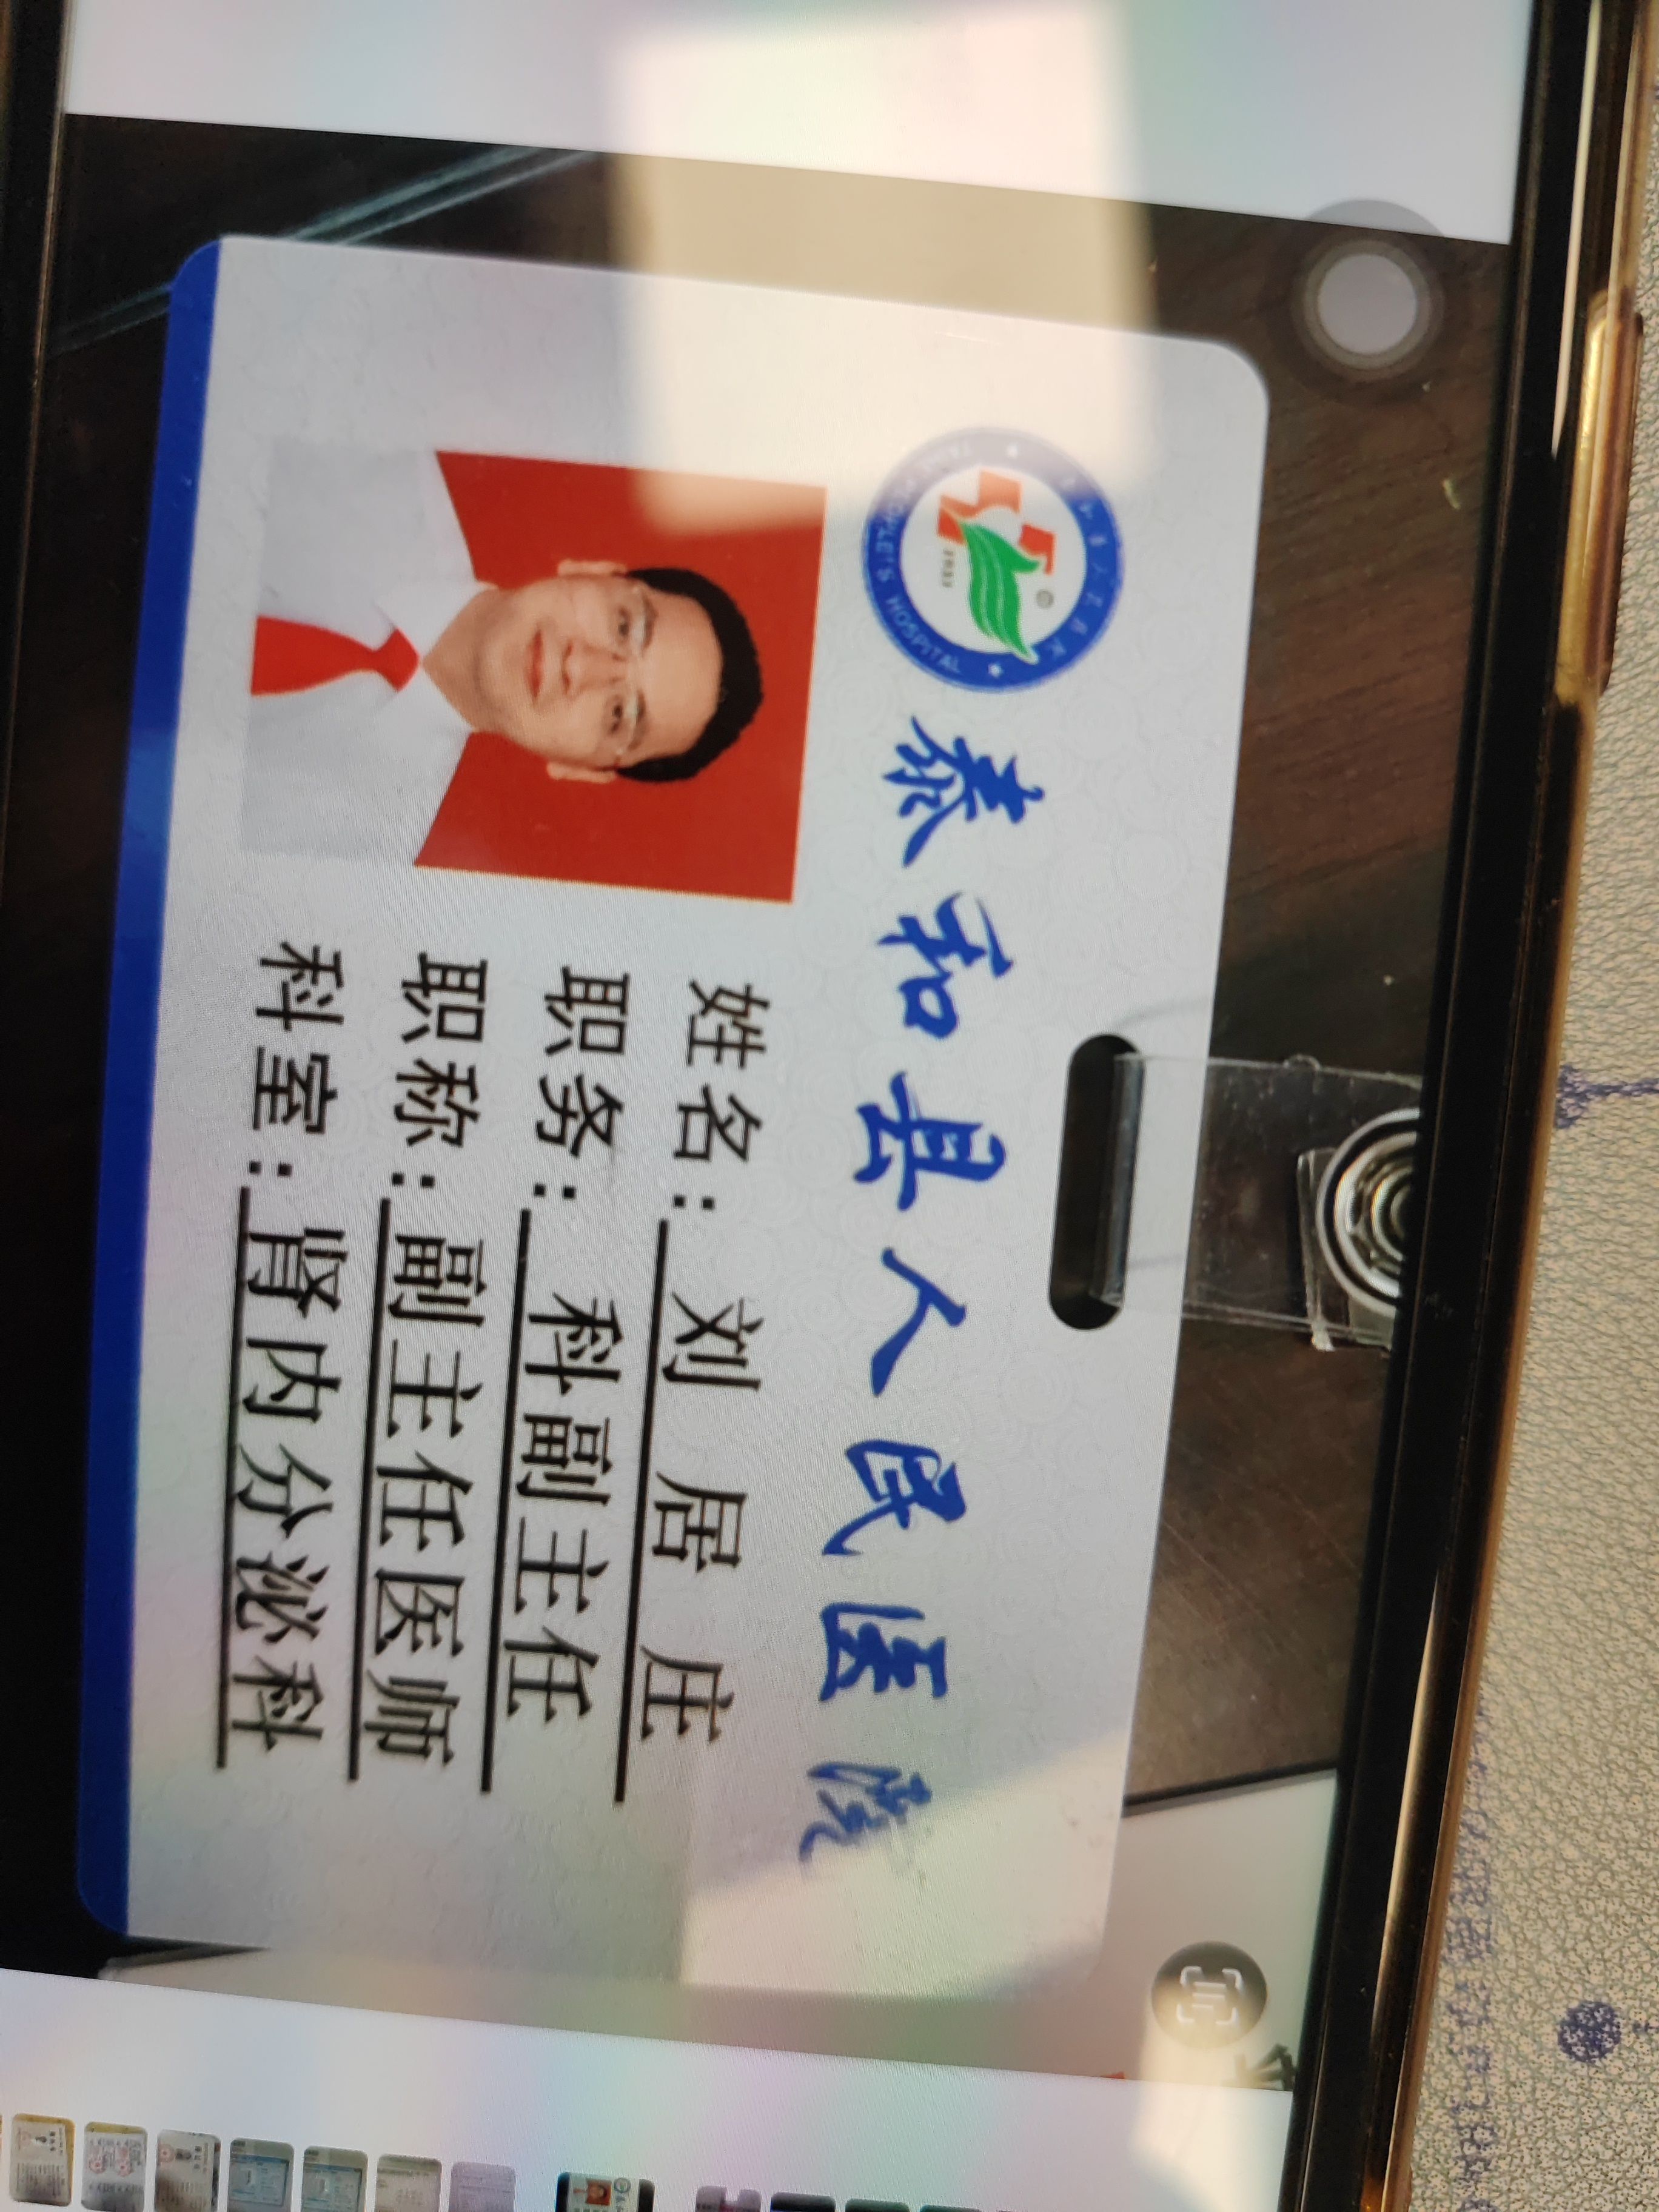 泰和县人民医院
PEOPLE'S HOSPITAL
姓名：刘居庄
职务：科副主任
职称：副主任医师
科室：肾内分泌科